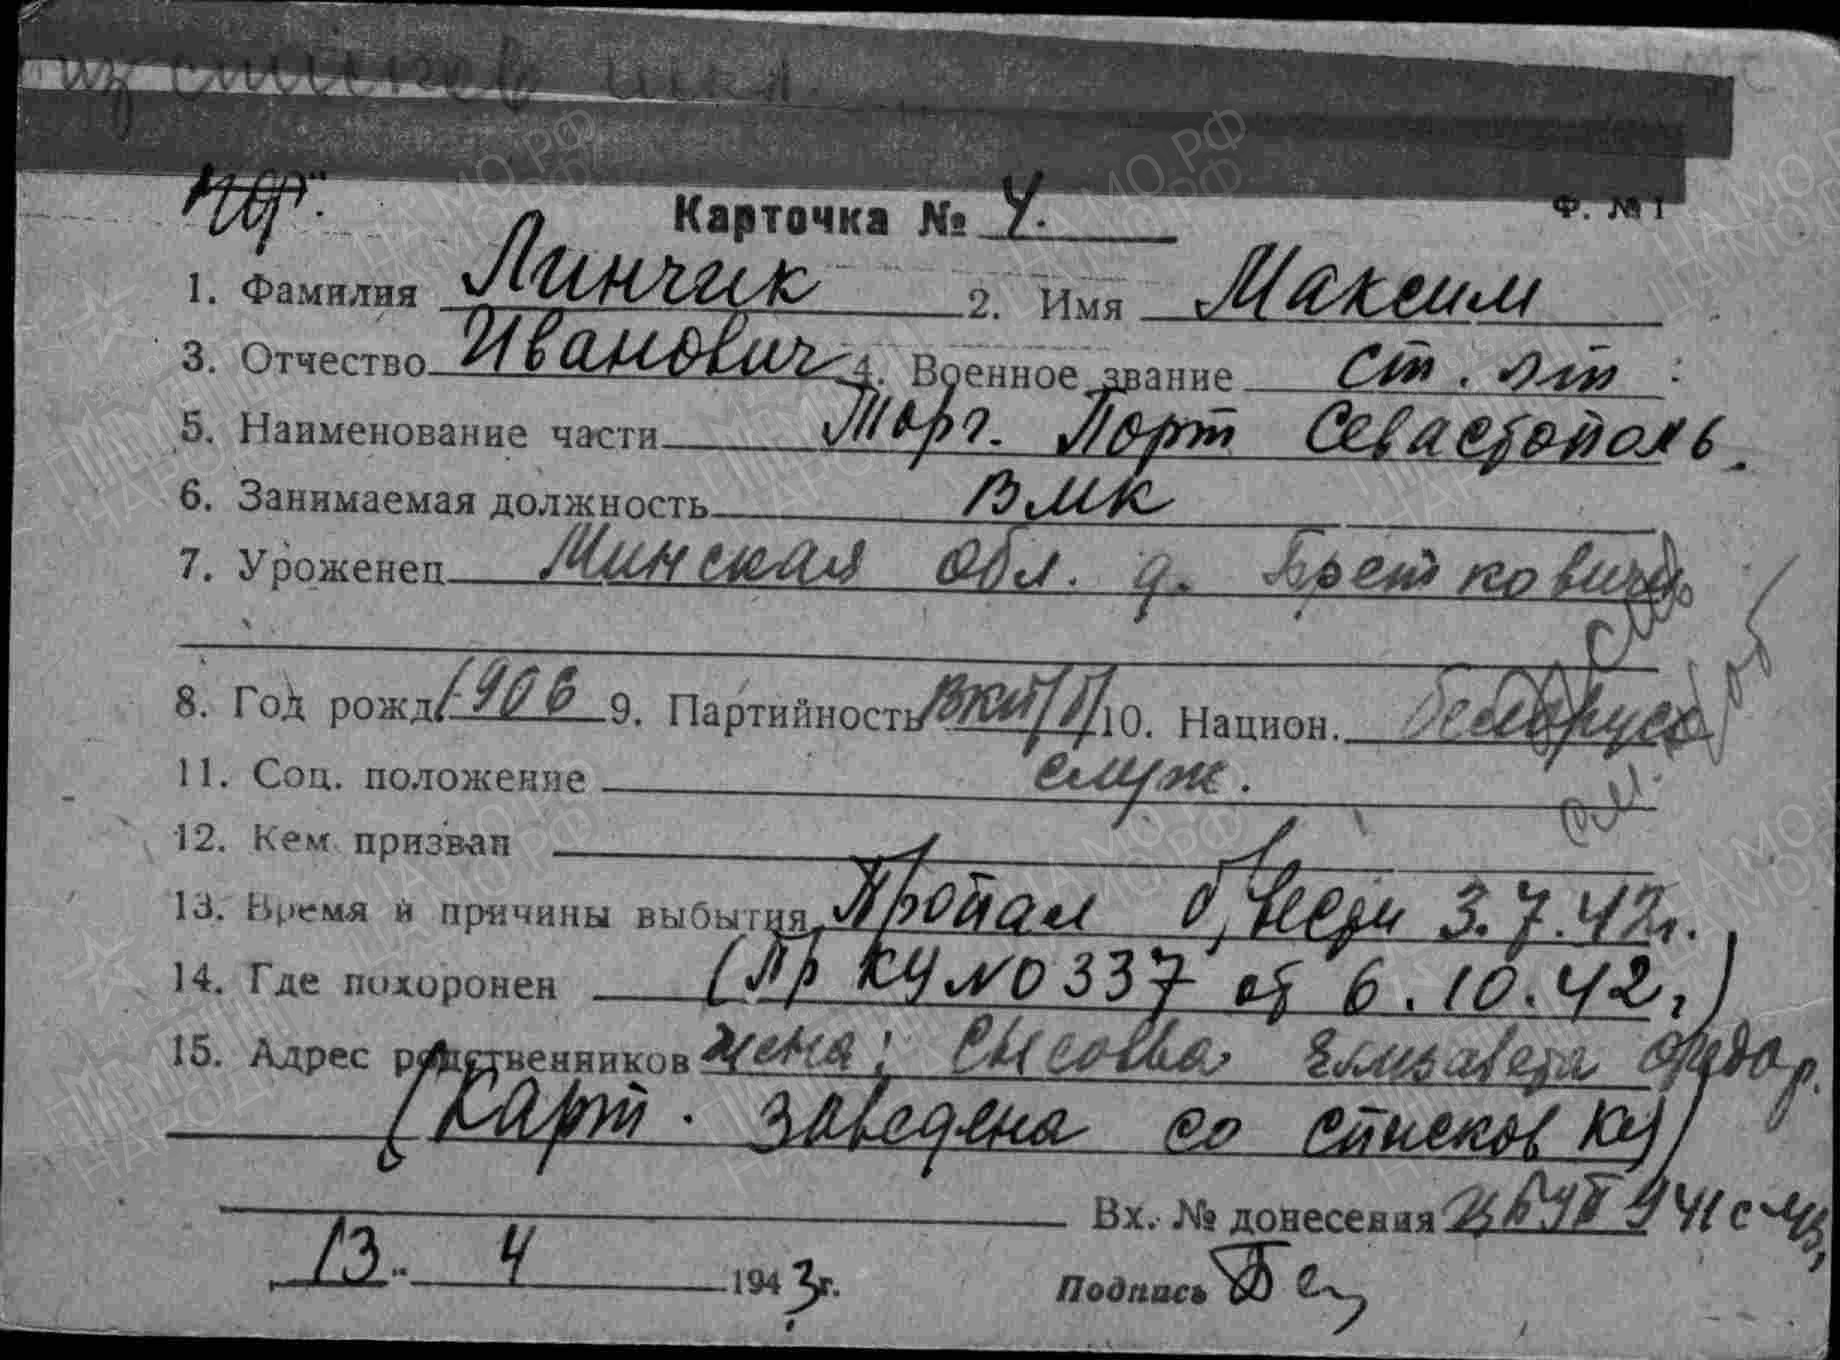 из списков
Карточка № 4.
Ф. № 1
1. Фамилия Линчик 2. Имя Максим
3. Отчество Иванович 4. Военное звание ст. лт
5. Наименование части Торг. Порт Севастополь.
6. Занимаемая должность ВМК
7. Уроженец Минская обл. д.
8. Год рожд. 1906 9. Партийность ВКП/б/ 10. Национ. белорус
11. Соц. положение служ.
12. Кем призван
13. Время и причины выбытия Пропал б/вести 3.7.42г.
14. Где похоронен (Пр КУ № 0337 от 6.10.42г)
15. Адрес родственников жена: Сысоева Елизавета Федор.
(Карт. заведена со списков КУ)
Вх. № донесения
13 " 4 1943 г. Подпись
ЦАМО РФ
ПАМЯТЬ НАРОДА